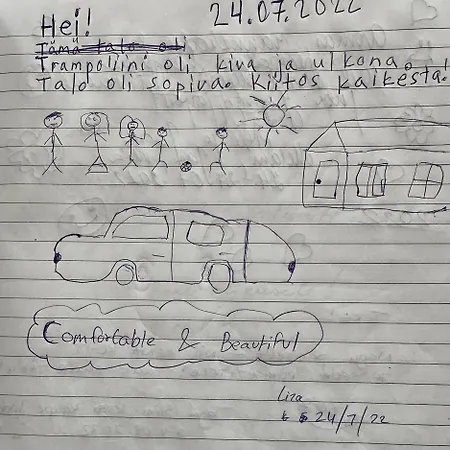 24.07.2022
Hei!
Tämä talo oli
Trampoliini oli kiva ja ulkona.
Talo oli sopiva. Kiitos kaikesta!
Comfortable & Beautiful
Liza
24/7/22